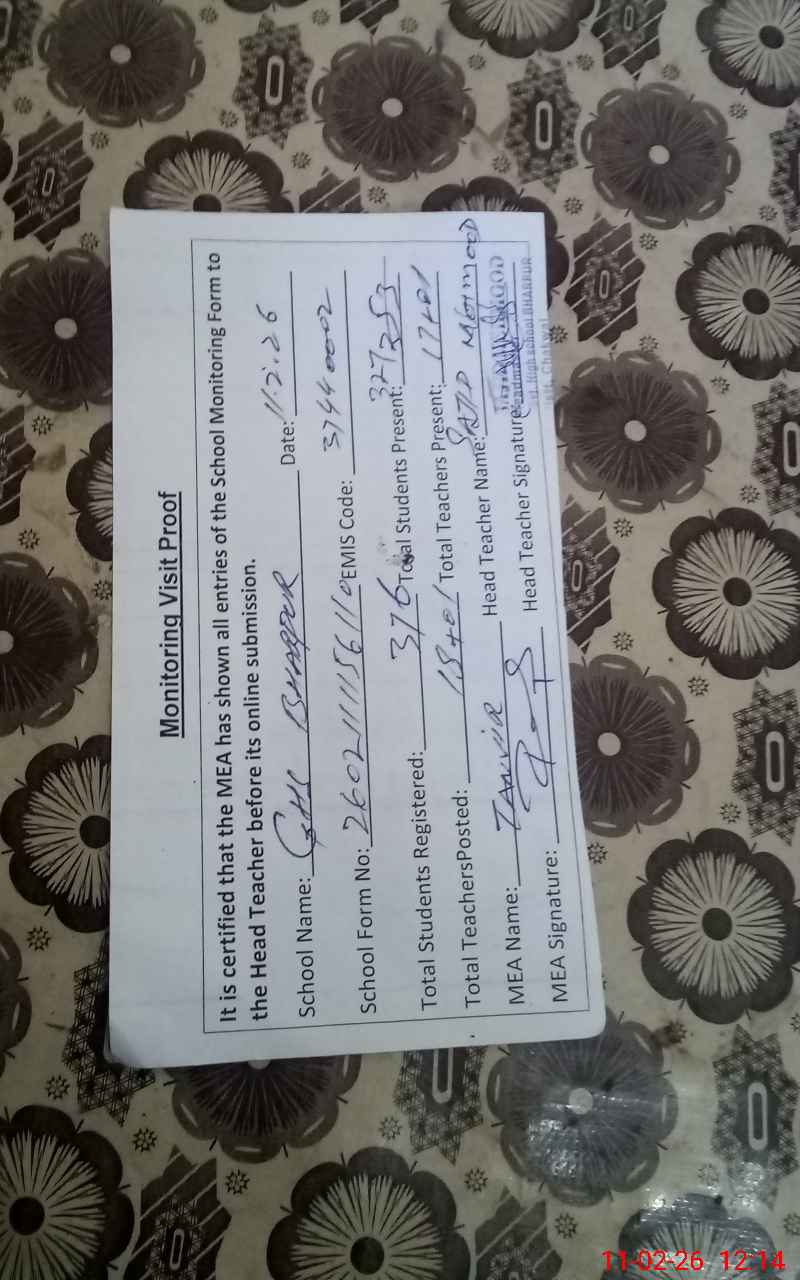 Monitoring Visit Proof
It is certified that the MEA has shown all entries of the School Monitoring Form to
the Head Teacher before its online submission.
School Name: GHS BHARPUR Date: 11.2.26
School Form No: EMIS Code: 37440002
Total Students Registered: 376 Total Students Present: 327
Total TeachersPosted: 18+01 Total Teachers Present: 17+01
MEA Name: TANVIR Head Teacher Name: SAJID MEHMOOD
MEA Signature: Head Teacher Signature:
Headmaster
High school BHARPUR
Chakwal
11-02-26 12:14